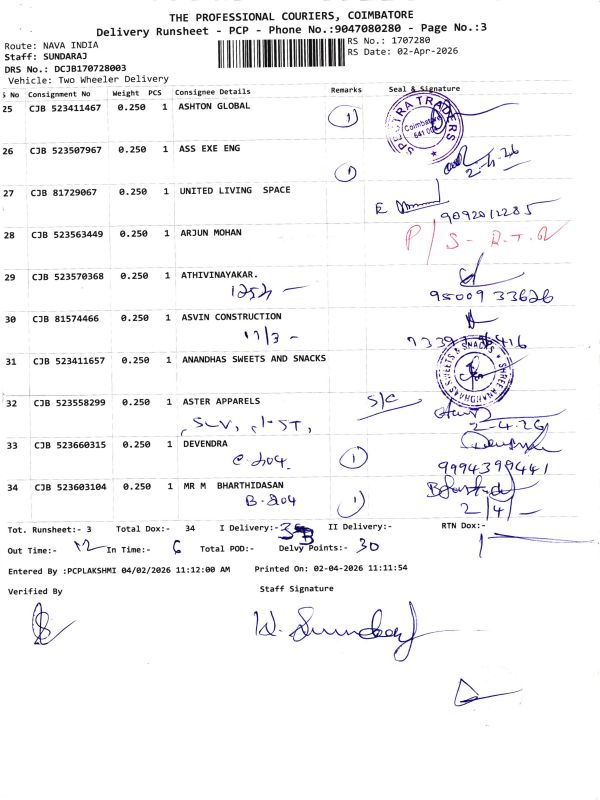 THE PROFESSIONAL COURIERS, COIMBATORE
Delivery Runsheet - PCP - Phone No.:9047080280 - Page No.:3
Route: NAVA INDIA
RS No.: 1707280
Staff: SUNDARAJ
RS Date: 02-Apr-2026
DRS No.: DCJB170728003
Vehicle: Two Wheeler Delivery
S No Consignment No Weight PCS Consignee Details Remarks Seal & Signature
25 CJB 523411467 0.250 1 ASHTON GLOBAL 1
SPECTRA TRADERS Coimbatore
26 CJB 523507967 0.250 1 ASS EXE ENG 1
2-4-26
27 CJB 81729067 0.250 1 UNITED LIVING SPACE
9092012285
28 CJB 523563449 0.250 1 ARJUN MOHAN P/S - R.T.O
29 CJB 523570368 0.250 1 ATHIVINAYAKAR.
95009 33626
30 CJB 81574466 0.250 1 ASVIN CONSTRUCTION
11/3 -
31 CJB 523411657 0.250 1 ANANDHAS SWEETS AND SNACKS
SHREE ANANDHAAS SWEETS & SNACKS
32 CJB 523558299 0.250 1 ASTER APPARELS S/C
2-4-26
33 CJB 523660315 0.250 1 DEVENDRA 1
C-204. 9994399441
34 CJB 523603104 0.250 1 MR M BHARTHIDASAN 1
B-204 2/4/-
Tot. Runsheet:- 3 Total Dox:- 34 I Delivery:- 33 II Delivery:- RTN Dox:- 1
Out Time:- 12 In Time:- 6 Total POD:- Delvy Points:- 30
Entered By :PCPLAKSHMI 04/02/2026 11:12:00 AM Printed On: 02-04-2026 11:11:54
Verified By Staff Signature